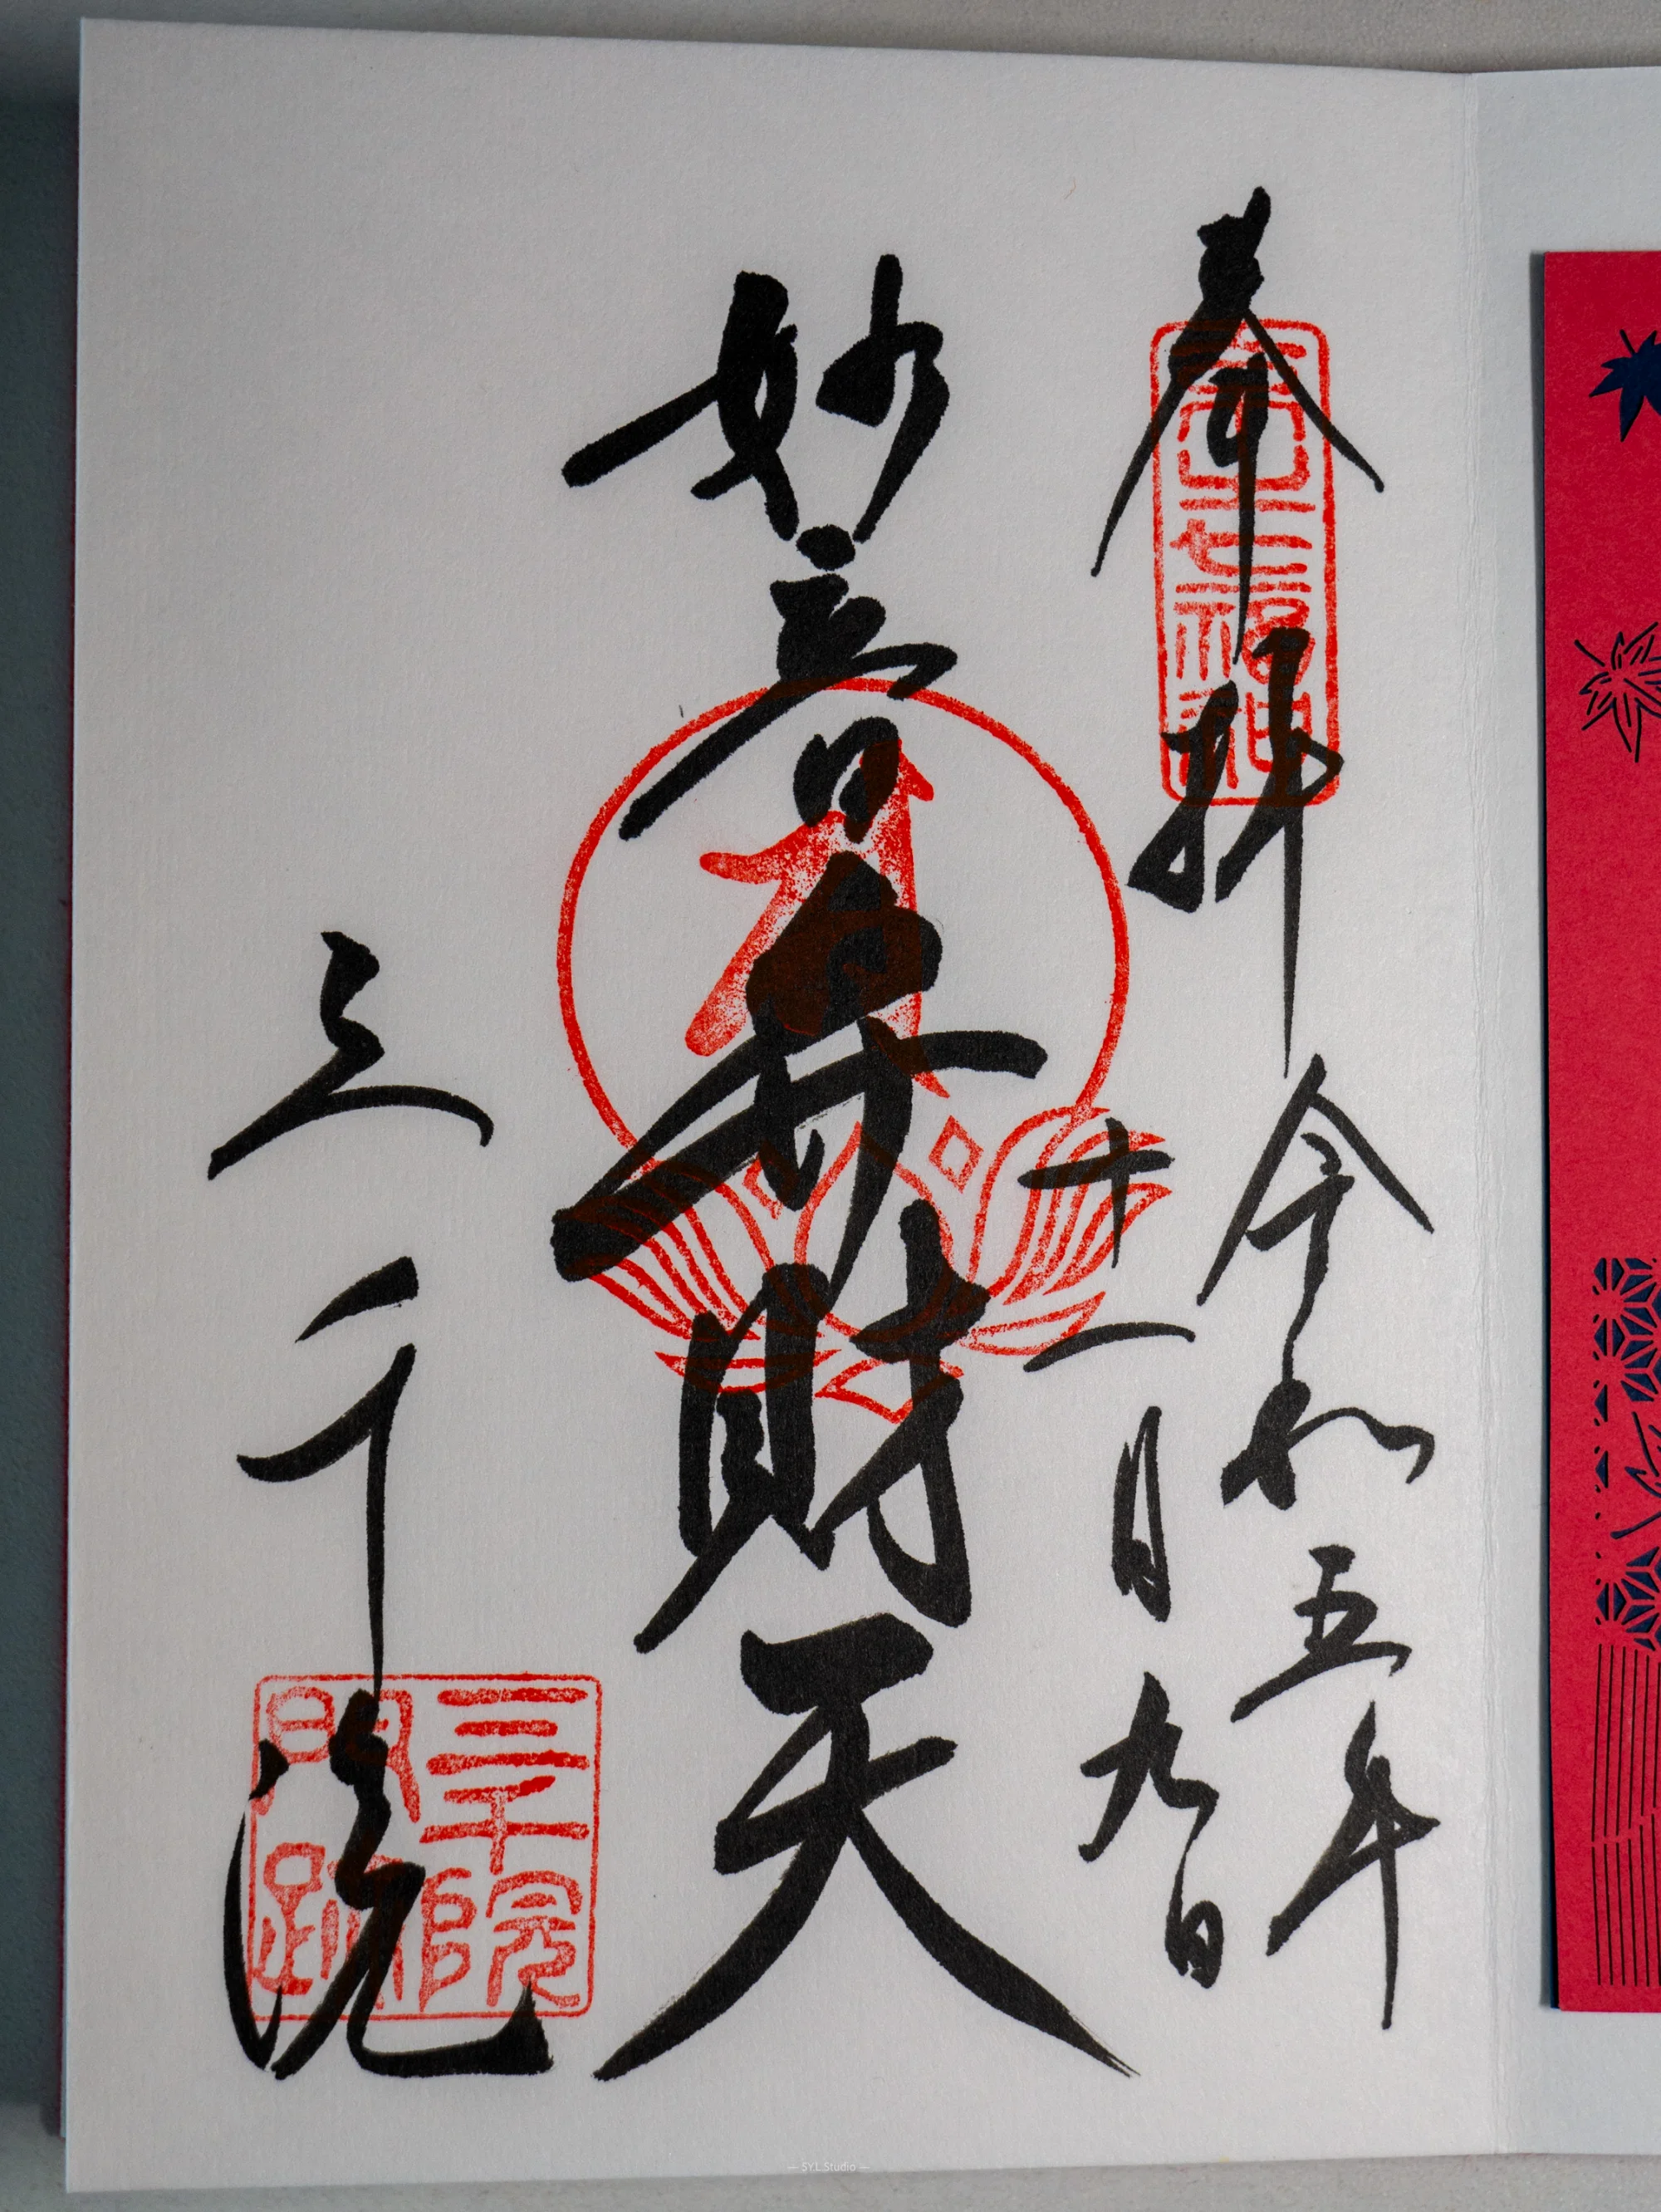 奉拝
令和五年
十一月九日
妙音弁財天
三千院
三千院
門跡
— SYL.Studio —